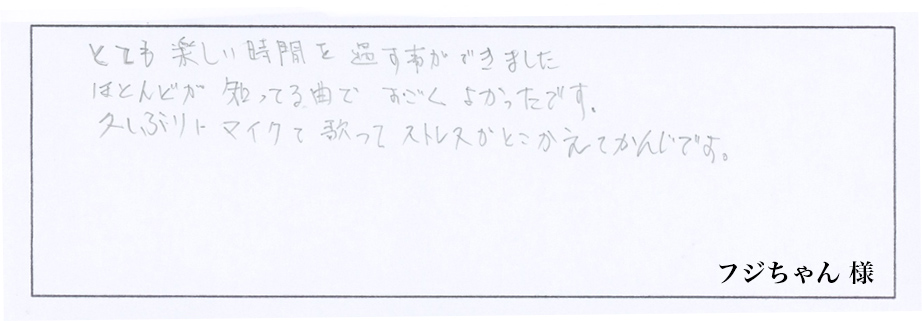 とても楽しい時間を過す事ができました
ほとんどが知ってる曲ですごくよかったです。
久しぶりにマイクで歌ってストレスがとこかえてかんじです。
フジちゃん 様